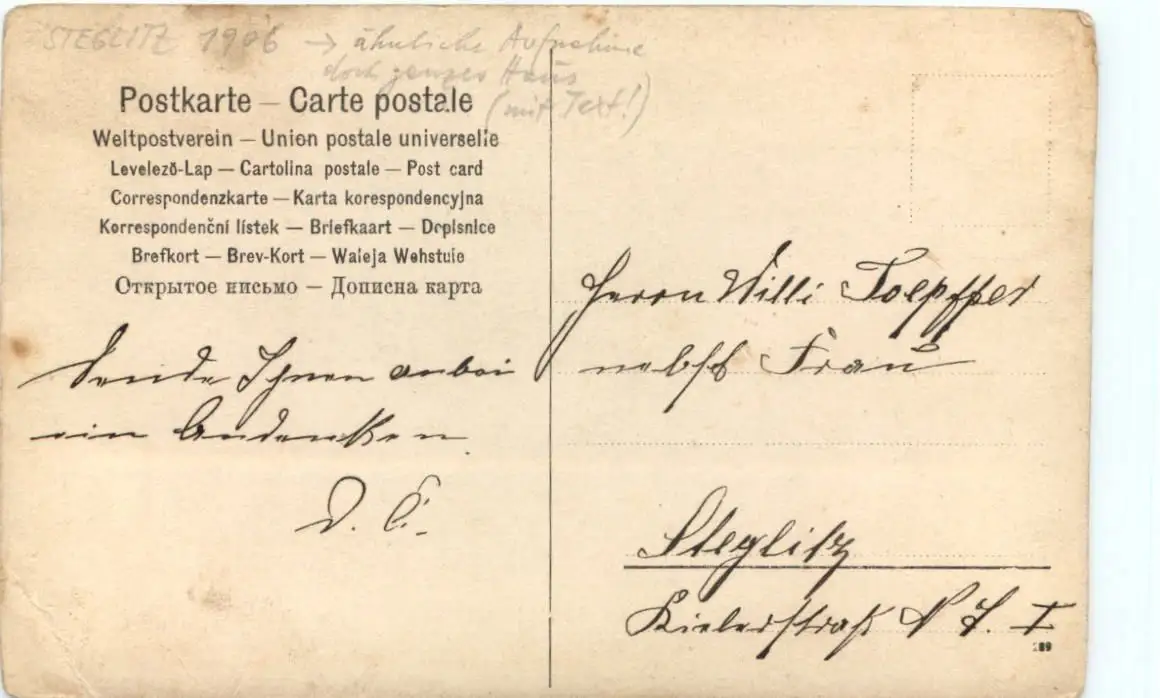 STEGLITZ 1906 → ähnliche Aufnahme
doch ganzes Haus
(mit Text!)
Postkarte — Carte postale
Weltpostverein — Union postale universelle
Levelező-Lap — Cartolina postale — Post card
Correspondenzkarte — Karta korespondencyjna
Korrespondenční lístek — Briefkaart — Dopisnice
Brefkort — Brev-Kort — Waleja Wehstule
Открытое письмо — Дописна карта
Sende Ihnen anbei
ein Andenken
D. E.
Herrn Willi Toepffer
nebst Frau
Steglitz
Kielerstraß N 7. I
289